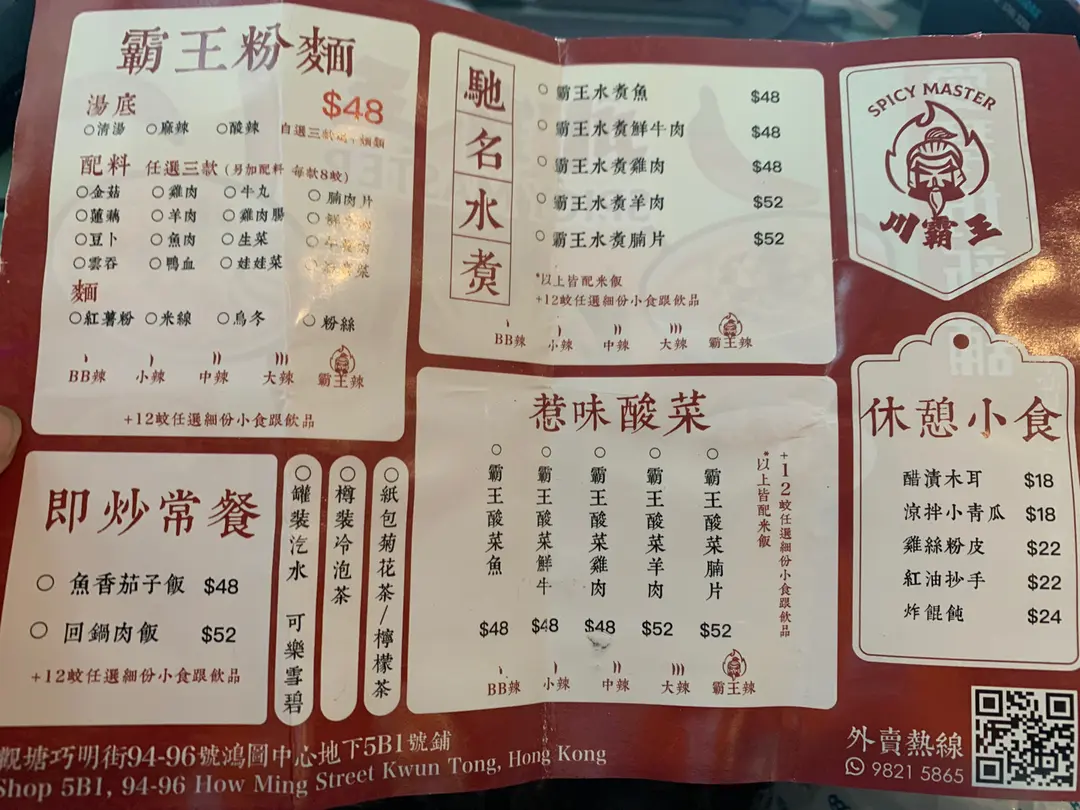 霸王粉麵
湯底
$48
○清湯 ○麻辣 ○酸辣
自選三款
配料 任選三款 (另加配料 每款8蚊)
○金菇 ○雞肉 ○牛丸 ○腩肉片
○蓮藕 ○羊肉 ○雞肉腸
○豆卜 ○魚肉 ○生菜
○雲吞 ○鴨血 ○娃娃菜
麵
○紅薯粉 ○米線 ○烏冬 ○粉絲
BB辣 小辣 中辣 大辣 霸王辣
+12蚊任選細份小食跟飲品
馳名水煮
○ 霸王水煮魚 $48
○ 霸王水煮鮮牛肉 $48
○ 霸王水煮雞肉 $48
○ 霸王水煮羊肉 $52
○ 霸王水煮腩片 $52
*以上皆配米飯
+12蚊任選細份小食跟飲品
BB辣 小辣 中辣 大辣 霸王辣
SPICY MASTER
川霸王
即炒常餐
○ 魚香茄子飯 $48
○ 回鍋肉飯 $52
+12蚊任選細份小食跟飲品
○罐裝汽水 可樂雪碧
○樽裝冷泡茶
○紙包菊花茶/檸檬茶
惹味酸菜
○霸王酸菜魚 $48
○霸王酸菜鮮牛 $48
○霸王酸菜雞肉 $48
○霸王酸菜羊肉 $52
○霸王酸菜腩片 $52
*以上皆配米飯
+12蚊任選細份小食跟飲品
BB辣 小辣 中辣 大辣 霸王辣
休憩小食
醋漬木耳 $18
涼拌小青瓜 $18
雞絲粉皮 $22
紅油抄手 $22
炸餛飩 $24
觀塘巧明街94-96號鴻圖中心地下5B1號鋪
Shop 5B1, 94-96 How Ming Street Kwun Tong, Hong Kong
外賣熱線
9821 5865